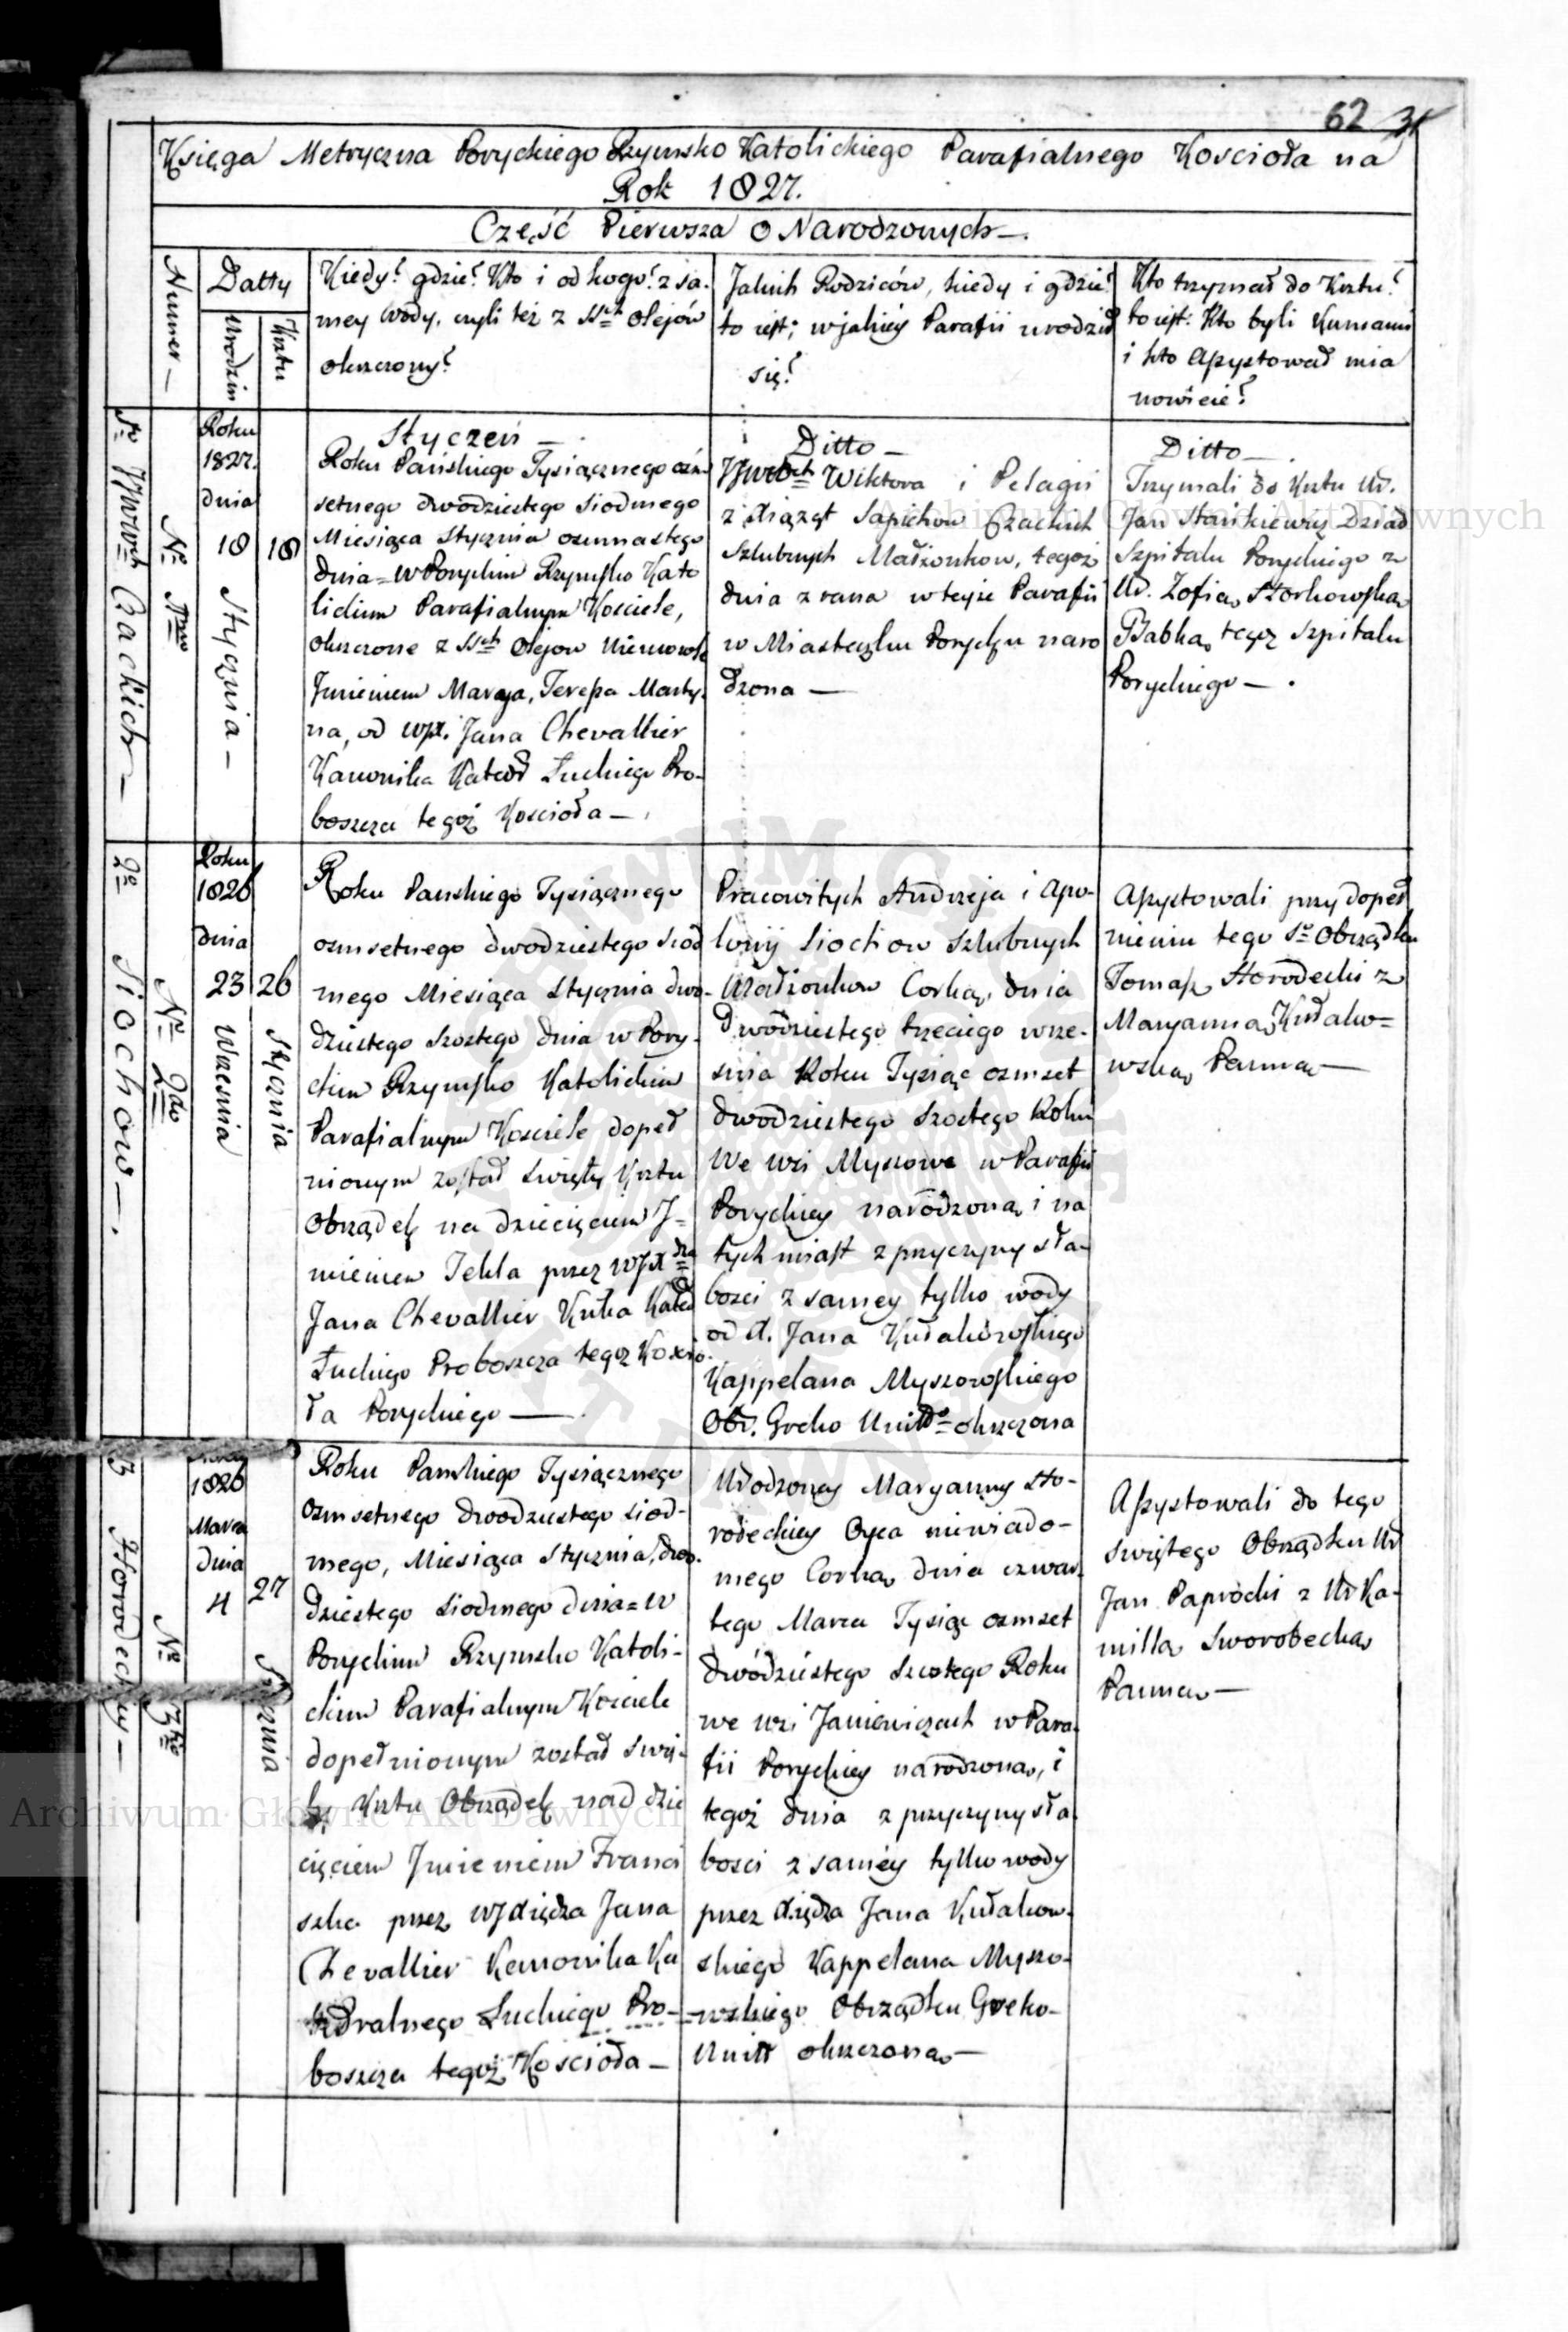 62 31
Księga Metryczna Poryckiego Rzymsko Katolickiego Parafialnego Kościoła na
Rok 1827.
Część Pierwsza o Narodzonych —.
Numer —
Datty
Urodzin
Krztu
Kiedy? gdzie? Kto i od kogo? z sa-
mey wody, czyli też z SSch Olejów
okrzczony?
Jakich Rodziców, kiedy i gdzie?
to iest; w jakiey Parafii urodził
się?
Kto trzymał do Krztu?
to iest: Kto byli Kumami
i kto Assystował mia
nowicie?
Czackich —
Nr
Roku
1827.
dnia
18 18
Stycznia —
Styczeń —
Roku Pańskiego Tysiącznego ośm
setnego dwodziestego siodmego
Miesiąca Stycznia osmnastego
dnia = w Poryckim Rzymsko Kato
lickim Parafialnym Kosciele,
okrzczone z SSch Olejow Niemowle
Jmieniem Marya, Teressa Marty-
na, od WJX. Jana Chevallier
Kanonika Kated Łuckiego Pro-
boszcza tegoż Koscioła —
Ditto —
Wiktora i Pelagii
z Xiążąt Sapiehow Czackich
Szlubnych Małżonkow, tegoż
dnia z rana w teyże Parafii
w Miasteczku Porycku naro
dzona —
Ditto —.
Trzymali do Krztu Ur.
Jan Stankiewicz Dziad
Szpitalu Poryckiego z
Ur. Zofią Storkowską
Babką tegoż Szpitalu
Poryckiego — .
2o Siochow —.
Nr 2do
Roku
1826
dnia
23 26
Wrzesnia
Stycznia
Roku Panskiego Tysiącznego
osmsetnego dwodziestego siod
mego Miesiąca Stycznia dwo-
dziestego szostego dnia w Pory-
ckim Rzymsko Katolickim
Parafialnym Kosciele dopeł
nionym został Swięty Krztu
Obrządek na dziecięciem J=
mieniem Tekla przez WJXdza
Jana Chevallier Knka Kated
Łuckiego Proboszcza tegoż Koscio-
ła Poryckiego —
Pracowitych Andrzeja i Apo-
lonij Siochow Szlubnych
Małżonkow Corka, dnia
Dwódziestego trzeciego wrze-
snia Roku Tysiąc osmset
dwodziestego Szostego Roku
We wsi Myszowe w Parafii
Poryckiey narodzona, i na
tych miast z przyczyny sła-
bosci z samey tylko wody
od X. Jana Kułakowskiego
Kappelana Myszowskiego
Obr. Greko Unitto okrzczona
Assystowali przy dopeł
nieniu tego So Obrządku
Tomasz Horodecki z
Maryanną Kułako=
wską Panną —
3 Horodeckij —
Nr 3tio
1826
Marca
dnia
4 27
Roku Panskiego Tysiącznego
osmsetnego dwodziestego siod-
mego, Miesiąca Stycznia, dwo-
dziestego siodmego dnia = w
Poryckim Rzymsko Katoli-
ckim Parafialnym Kosciele
dopełnionym został Swię-
ty Krztu Obrządek nad dzie
cięciem Jmieniem Franci
szka przez WJXiędza Jana
Chevallier Kanonika Ka
tedralnego Łuckiego Pro-
boszcza tegoż Koscioła —
Urodzoney Maryanny Ho-
rodeckiey Oyca niewiado-
mego Corka, dnia czwar-
tego Marca Tysiąc osmset
dwódziestego Szostego Roku
we wsi Janiewiczach w Para-
fii Poryckiey narodzona, i
tegoż dnia z przyczyny sła-
bosci z saméy tylko wody
przez Xiędza Jana Kułakow-
skiego Kappelana Myszo-
wskiego Obrządku Greko-
Unitt okrzczona —
Assystowali do tego
swiętego Obrządku Ur
Jan Paprocki z Ur Ka-
millą Sworobecką
Panną —